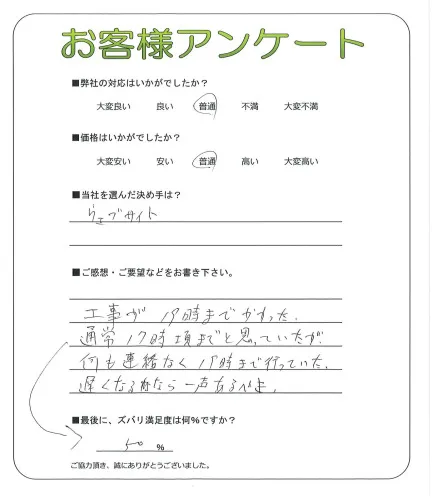 お客様アンケート
■弊社の対応はいかがでしたか？
大変良い 良い 普通 不満 大変不満
■価格はいかがでしたか？
大変安い 安い 普通 高い 大変高い
■当社を選んだ決め手は？
ウェブサイト
■ご感想・ご要望などをお書き下さい。
工事が19時までかかった。
通常17時頃までと思っていたが、
何も連絡なく19時まで行っていた。
遅くなるなら一声あるべき。
■最後に、ズバリ満足度は何%ですか？
50 %
ご協力頂き、誠にありがとうございました。